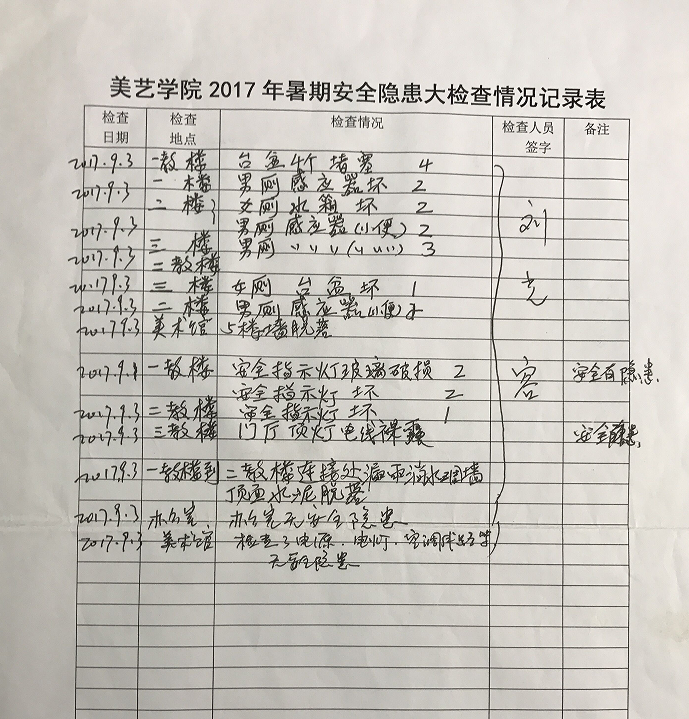 美艺学院 2017 年暑期安全隐患大检查情况记录表
检查日期 检查地点 检查情况 检查人员签字 备注
2017.9.3 一教楼 台盆4个堵塞 4
2017.9.3 一楼 男厕感应器坏 2
二楼 女厕水箱坏 2
2017.9.3 男厕感应器(小便) 2
2017.9.3 三楼 男厕 〃 〃 〃 (〃 〃) 3
2017.9.3 二教楼
2017.9.3 三楼 女厕台盆坏 1
2017.9.3 二楼 男厕感应器(小便)
2017.9.3 美术馆 5楼墙脱落
2017.9.3 一教楼 安全指示灯玻璃破损 2 安全有隐患
安全指示灯坏 2
2017.9.3 二教楼 安全指示灯坏 1
2017.9.3 三教楼 门厅顶灯电线裸露 安全隐患
2017.9.3 一教楼到 二教楼连接处漏雨
顶面水泥脱落
2017.9.3 办公室 办公室无安全隐患
2017.9.3 美术馆 检查了电源、电灯、空调
无安全隐患
刘